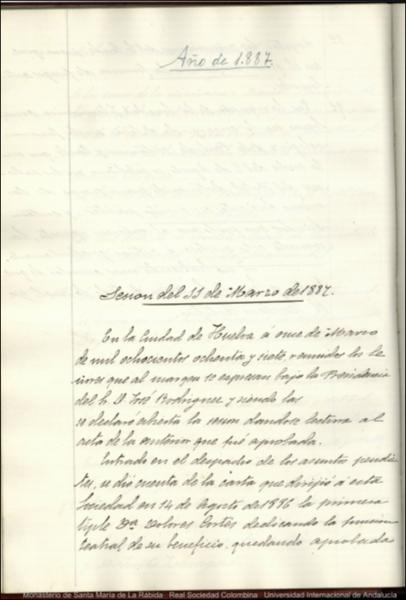 Año de 1.887.
Sesion del 11 de Marzo de 1887.
En la Ciudad de Huelva á once de Marzo
de mil ochocientos ochenta y siete, reunidos los Se-
ñores que al margen se expresan bajo la Presidencia
del Sr. D. José Rodriguez y siendo las
se declaró abierta la sesion dandose lectura al
acta de la anterior que fué aprobada.
Entrado en el despacho de los asuntos pendien-
tes, se dió cuenta de la carta que dirigió á esta
Sociedad en 14 de Agosto de 1886 la primera
tiple Dña. Dolores Cortés dedicando la funcion
teatral de su beneficio, quedando aprobada
Monasterio de Santa María de La Rábida. Real Sociedad Colombina. Universidad Internacional de Andalucía